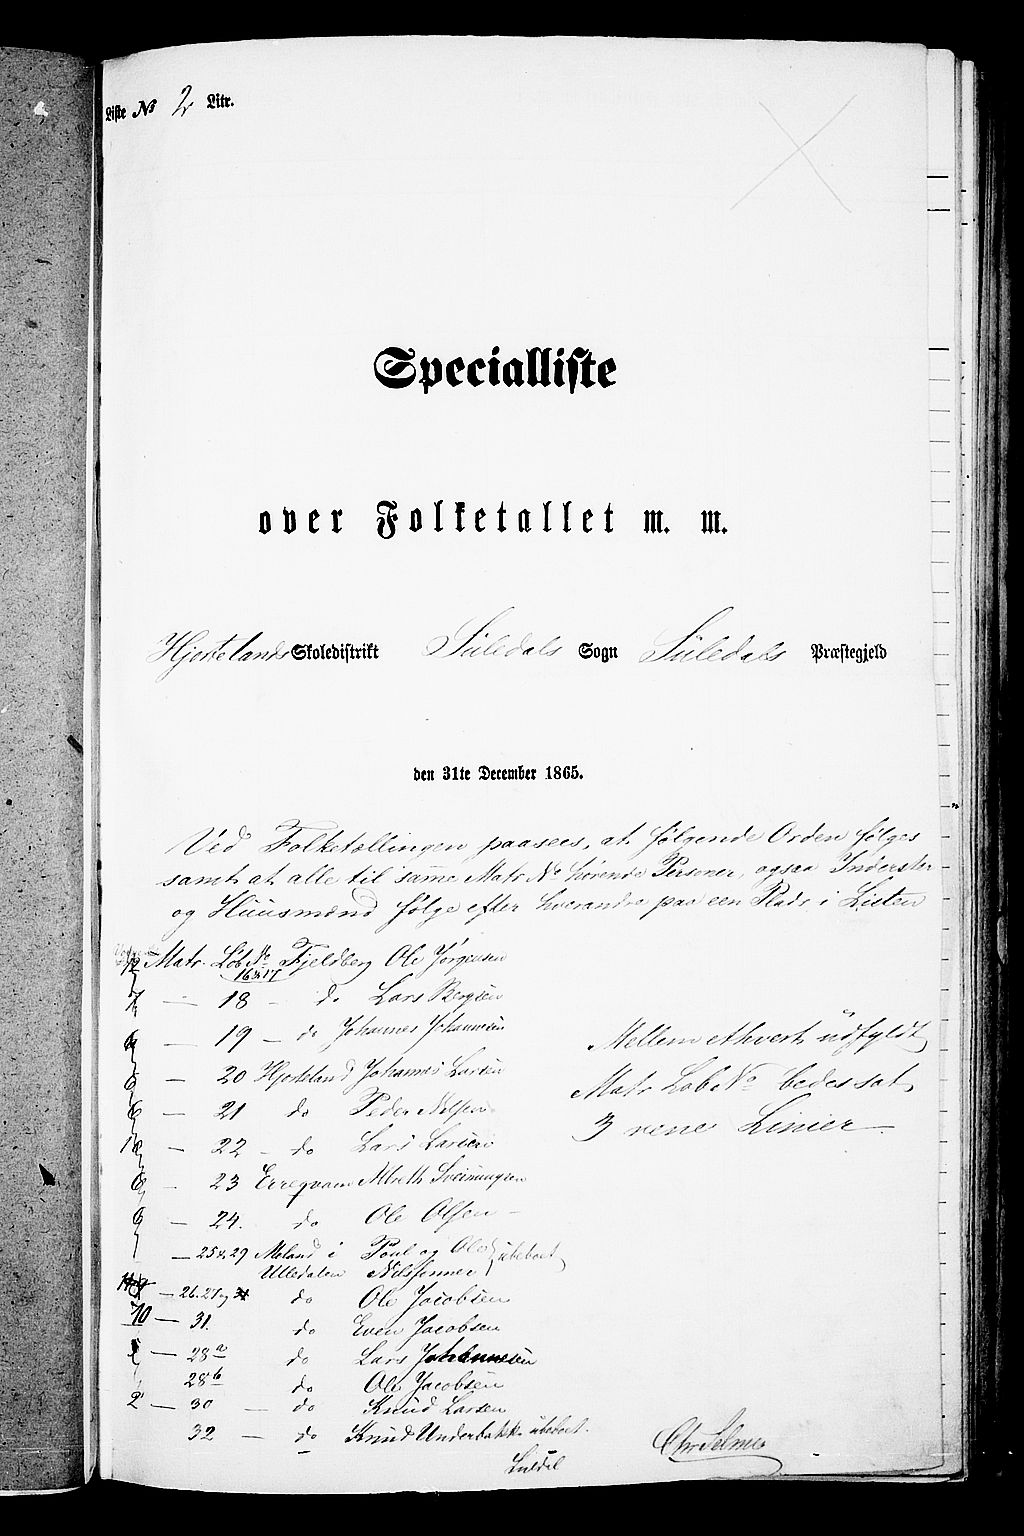 Liste No 2 Litr.
Specialliste
over Folketallet m. m.
Hjortelands Skoledistrikt Süledals Sogn Süledals Præstegjeld
den 31te December 1865.
Ved Folketællingen paasees, at følgende Orden følges
samt at alle til samme Matr No hørende Personer, ogsaa Inderster
og Huusmænd følge efter hverandre paa een Plads i Listen
12 Matr. Løb No Fjeldberg Ole Jørgensen
16 & 17
7 — 18 — do Lars Bergsen
— 19 — do Johannes Johannesen
Mellem ethvert üdfyldt
— 20 Hjorteland Johannes Larsen
Matr Løb No bedes sat
6 — 21 do Peder Nilsen
3 rene Linier
— 22 — do Lars Larsen
— 23 Erregvam Mbreth Sveinungsen
— 24. do Ole Olsen —
— 25 & 29 Meland i Poul og Ole ubeboet
Ulledalen Nilssønner
— 26. 27 og do Ole Jacobsen
10 — 31. do Even Jacobsen
— 28a do Lars Johannesen
28b do Ole Jacobsen
2 — 30 — do Knud Larsen
32 — do Knud ubeboet.
Chr Selmer
Suldal